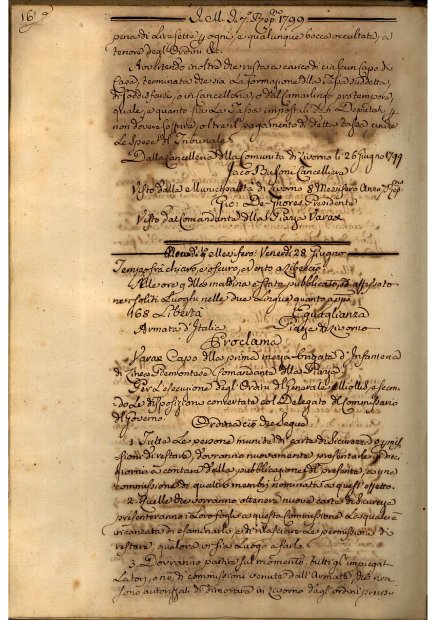 1799
pena di Lire sette per ogni, e qualunque bocca occultata; a
tenore degli Ordini &c.
Avvertendo inoltre che resta a carico di ciascun Capo di
Casa, terminata che sia la formazione della Tassa suddetta,
di soddisfarsi, o in Cancelleria, o dal Camarlingo pro tempore,
quale, e quanto sia la Tassa impostali
non dover soffrire, oltre il pagamento di detta tassa anche
le spese del Tribunale
Dalla Cancelleria della Comunità di Livorno li 26 Giugno 1799
Jaco Busoni Cancelliere
Visto dalla Municipalità di Livorno 8 Messifero Anno 7
Gio: De-Ghores Presidente
Visto dal Comandante della Piazza Varax
Messifero: Venerdì 28 Giugno
Tempo fra chiaro, e oscuro, e vento a Libeccio
Alle ore 9 della mattina è stato pubblicato, ed affissato
nei soliti Luoghi nelle due Lingue quanto appo
168 Libertà Eguaglianza
Armata d'Italia Piazza di Livorno
Proclama
Varax Capo della prima mezza-brigata d'Infanteria
di Linea Piemontese Comandante della Piazza
Per l'esecuzione degli Ordini del Generale Miollis, e secon
do le disposizioni concertate col Delegato del Commissario
del Governo.
Ordina ciò che segue
1. Tutte le persone munite di carte di sicurezza o permis
sioni di restare, dovranno nuovamente presentarle in due
giorni a contare dalla pubblicazione del presente, a una
commissione di quattro membri nominata a quest'effetto.
2. Quelle che vorranno ottenere nuove carte di sicurezza
presenteranno i loro fogli a questa commissione la quale è
incaricata d'esaminarle, e di rilasciare la permissione di
restare, qualora vi sia luogo a farlo.
3. Dovranno partire sul momento, tutti gl'impiegati
Latori, o no, di commissioni venute dall'Armata, che non
sono autorizzati di dimorare in Livorno dagl'ordini precisi